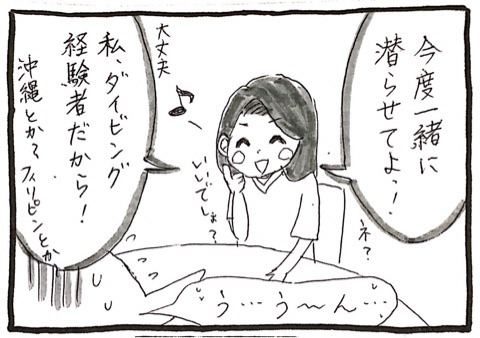 今度一緒に
潜らせてよっ！
ネ？
いいでしょ？
大丈夫
私、ダイビング
経験者だから！
沖縄とか？フィリピンとか
う…う〜ん…